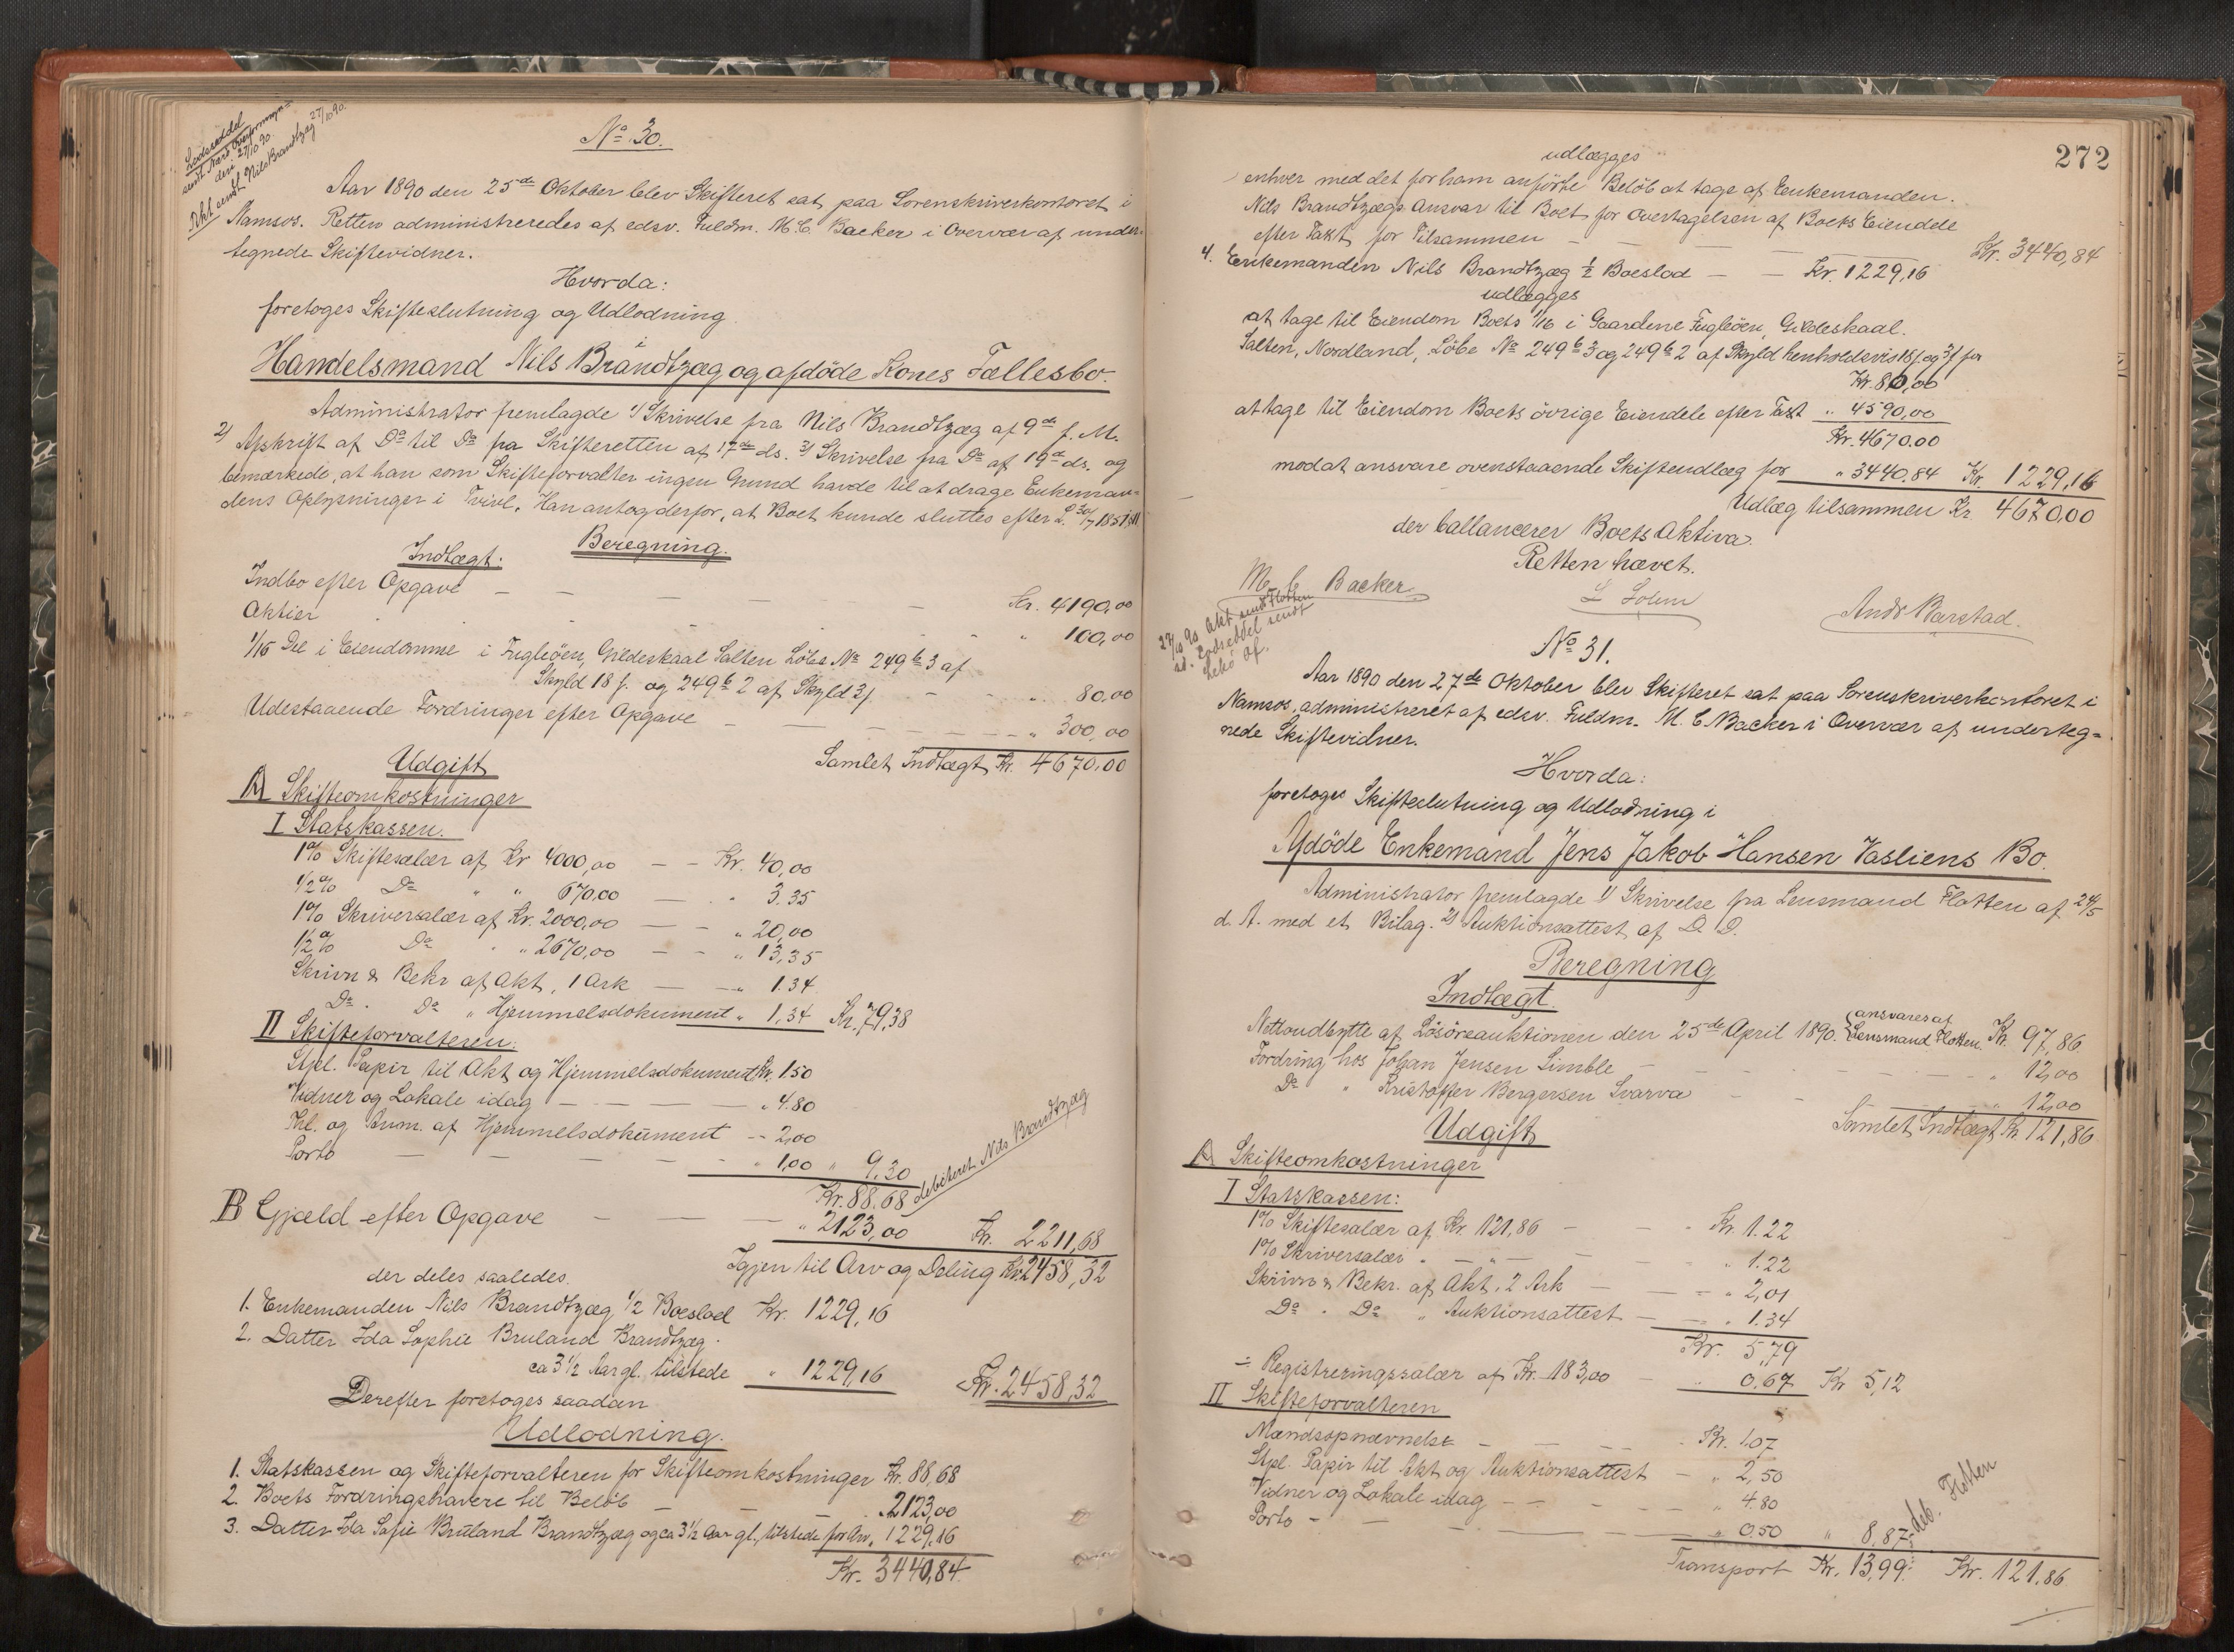 Lodseddel
sendt Nams Overformyn-
deri 27/10 90.
Akt sendt Nils Brandtzæg 27/10 90.
No 30.
Aar 1890 den 25de Oktober blev Skifteret sat paa Sorenskriverkontoret i
Namsos. Retten administreredes af edsv. Fuldm. M. C. Backer i Overvær af under-
tegnede Skiftevidner.
Hvorda:
foretoges Skifteslutning og Udlodning
i
Handelsmand Nils Brandtzæg og afdöde Kones Fællesbo.
Administrator fremlagde 1) Skrivelse fra Nils Brandtzæg af 9de f. M.
2) Afskrift af Do til Do fra Skifteretten af 17de ds. 3) Skrivelse fra Do af 19de ds. og
bemærkede, at han som Skifteforvalter ingen Grund havde til at drage Enkeman-
dens Oplysninger i Tvivl. Han antog derfor, at Boet kunde sluttes efter L. 30/7 1851 § 11
Beregning.
Indtægt:
Indbo efter Opgave — — — — — Kr. 4190,00
Aktier " 100,00
1/16 Del i Eiendomme i Fugleöen, Gildeskaal Salten Löbe No 249 b 3 af
Skyld 18 f. og 249 b 2 af Skyld 3 f. — — " 80,00
Udestaaende Fordringer efter Opgave — — — — " 300,00
Samlet Indtægt Kr. 4670.00
Udgift
A Skifteomkostninger
I Statskassen.
1% Skiftesalær af Kr 4000,00 — — Kr. 40,00
1/2% Do " " 670,00 — " 3.35
1% Skriversalær af Kr. 2000,00 — — " 20,00
1/2% Do " " 2670,00 — — " 13,35
Skrivn & Bekr af Akt, 1 Ark — — " 1.34
Do. Do " Hjemmelsdokument " 1,34 Kr. 79,38
II Skifteforvalteren:
Stpl. Papir til Akt og Hjemmelsdokument Kr. 1.50
Vidner og Lokale idag — — — " 4.80
Thl. og Anm. af Hjemmelsdokument — " 2,00
Porto — — — — — " 1,00 " 9.30
Kr. 88.68 debiteret Nils Brandtzæg
B Gjæld efter Opgave — — — " 2123,00 Kr. 2211,68
Igjen til Arv og Deling Kr. 2458,32
der deles saaledes.
1. Enkemanden Nils Brandtzæg 1/2 Boeslod Kr. 1229,16
2. Datter Ida Sophie Bruland Brandtzæg.
ca 3 1/2 Aar gl. tilstede " 1229,16 Kr. 2458,32
Derefter foretoges saadan
Udlodning.
1. Statskassen og Skifteforvalteren for Skifteomkostninger Kr. 88,68
2. Boets Fordringshavere til Belöb — — " 2123,00
3. Datter Ida Sofie Bruland Brandtzæg og ca 3 1/2 Aar gl., tilstede for Arv " 1229,16
Kr. 3440,84.
272
udlægges
enhver med det for ham anförte Belöb at tage af Enkemanden.
Nils Brandtzægs Ansvar til Boet for Overtagelsen af Boets Eiendele
efter Takst for Tilsammen — — — — Kr. 3440,84
4. Enkemanden Nils Brandtzæg 1/2 Boeslod — — Kr. 1229,16
udlægges
at tage til Eiendom Boets 1/16 i Gaardene Fugleöen, Gildeskaal.
Salten, Nordland, Löbe No 249 b 3 og 249 b 2 af Skyld henholdsvis 18 f og 3 f for
Kr. 80,00
at tage til Eiendom Boets övrige Eiendele efter Taxt " 4590,00
Kr. 4670.00
mod at ansvare ovenstaaende Skifteudlæg for " 3440.84 Kr. 1229,16
Udlæg tilsammen Kr. 4670,00
der ballancerer Boets Aktiva.
Retten hævet.
M. C. Backer.
Andr Barstad.
27/10 90 Akt sendt Flotten
No 31.
Aar 1890 den 27de Oktober blev Skifteret sat paa Sorenskriverkontoret i
Namsos, administreret af edsv. Fuldm. M. C. Backer i Overvær af underteg-
nede Skiftevidner.
Hvorda:
foretoges Skifteslutning og Udlodning i
Afdöde Enkemand Jens Jakob Hansen Vasliens Bo.
Administrator fremlagde 1) Skrivelse fra Lensmand Flotten af 24/5
d. A. med et Bilag. 2) Auktionsattest af D. D.
Beregning
Indtægt.
Nettoudbytte af Lösöreauktionen den 25de April 1890. ansvares af Lensmand Flotten. Kr. 97,86
Fordring hos Johan Jensen Limble — — — " 12,00
Do " Kristoffer Bergersen Svarva — — " 12,00
Samlet Indtægt Kr 121,86
Udgift
A Skifteomkostninger
I Statskassen:
1% Skiftesalær af Kr. 121,86 — — Kr. 1.22
1% Skriversalær " — " — — " 1.22
Skrivn & Bekr. af Akt, 2 Ark — — " 2,01
Do. Do. " Auktionsattest — — " 1.34
Kr. 5,79
÷ Registreringssalær af Kr. 183,00 — " 0.67 Kr 5,12
II Skifteforvalteren
Mændsopnævnelse — — — Kr. 1.07
Stpl. Papir til Akt og Auktionsattest — " 2,50
Vidner og Lokale idag — — — " 4.80
Porto — — — " 0.50 " 8,87 deb. Flotten
Transport Kr. 13,99. Kr. 121.86